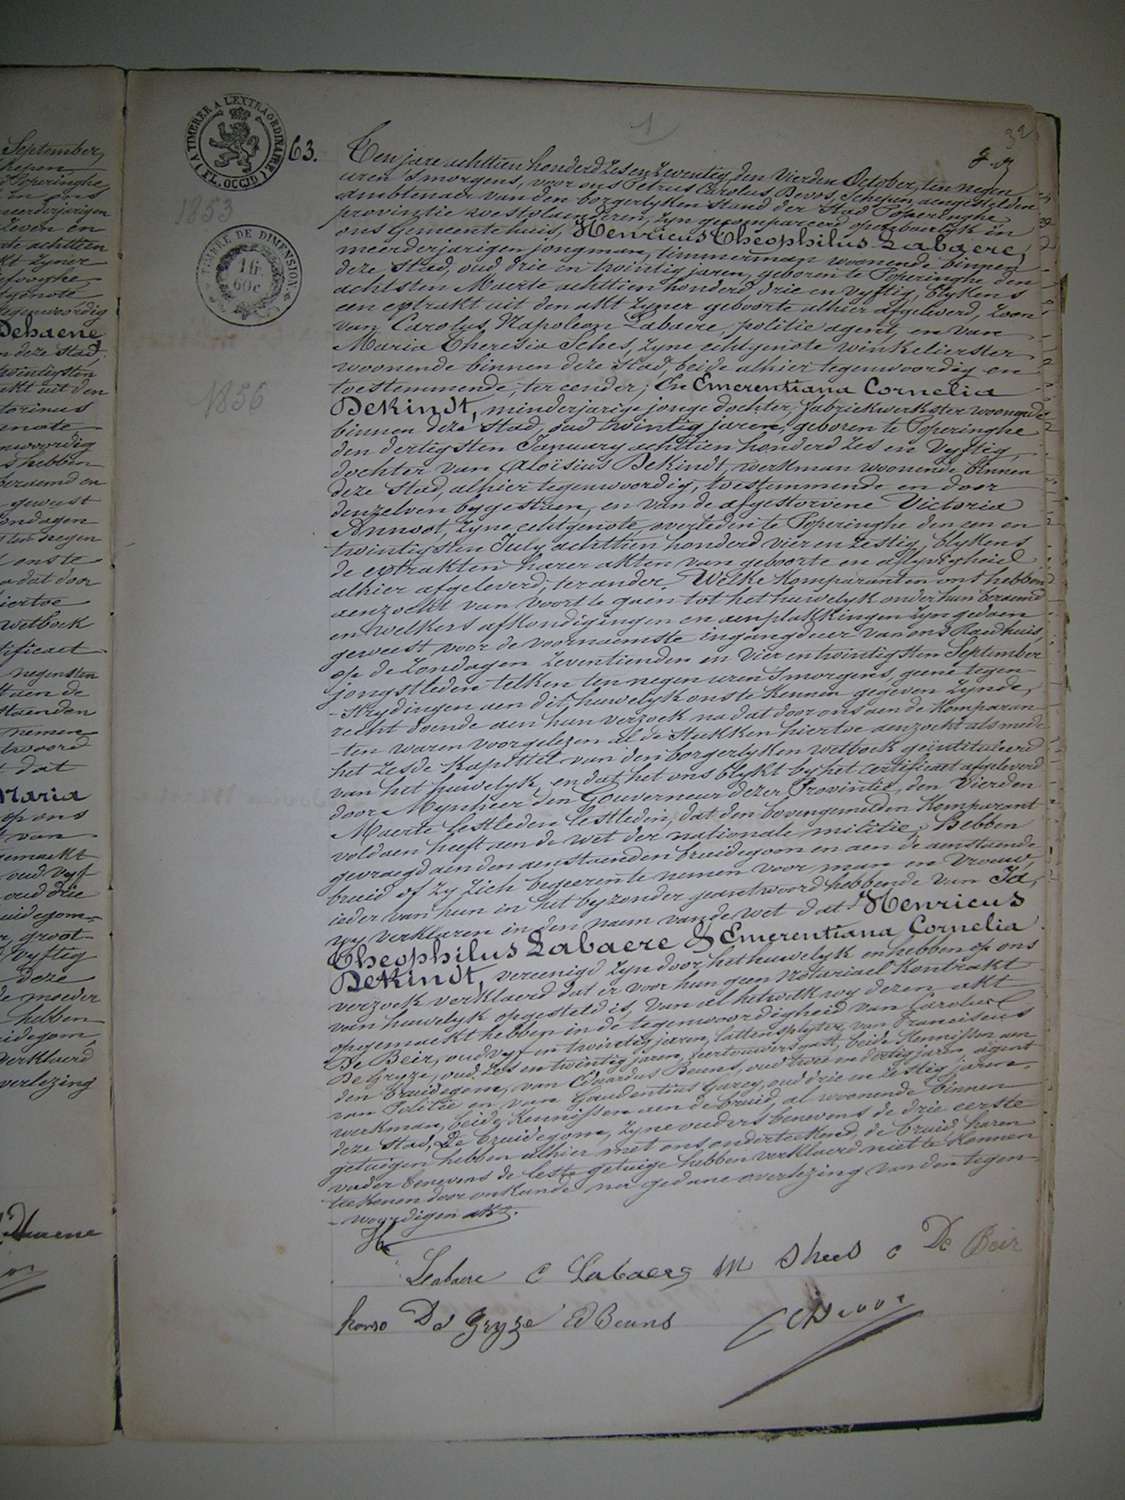 A TIMBRER A L'EXTRAORDINAIRE
(FL. OCCID.)
63.
32
1853
TIMBRE DE DIMENSION
1 fr.
60 c
1856
Ten jare achttien honderd zes en zeventig, den Vierden October, ten negen
uren 's morgens, voor ons Petrus Carolus Devos, Schepen aengestelden
ambtenaer van den borgerlyken Stand der Stad Poperinghe
provinztie westvlaenderen, zyn gecompareerd openbaerlyk in
ons Gemeentehuis, Henricus Theophilus Labaere,
meerderjarigen jongman, timmerman woonende binnen
deze Stad, oud drie en twintig jaren, geboren te Poperinghe den
achtsten Maerte achttien honderd drie en vyftig, blykens
een extrakt uit den akt zyner geboorte alhier afgeleverd, zoon
van Carolus Napoleon Labaere, politie agent, en van
Maria Theresia Sches, zyne echtgenote winkelierster
woonende binnen deze Stad, beide alhier tegenwoordig en
toestemmende, ter eender; En Emerentiana Cornelia
Dekindt, minderjarige jonge dochter, fabriekwerkster woonende
binnen deze Stad, oud twintig jaren, geboren te Poperinghe
den dertigsten January achttien honderd zes en vyftig,
dochter van Aloïsius Dekindt, werkman woonende binnen
deze Stad, alhier tegenwoordig, toestemmende en door
denzelven bygestaen, en van de afgestorvene Victoria
Annoot, zyne echtgenote, overleden te Poperinghe den een en
twintigsten July achttien honderd vier en zestig, blykens
de extrakten harer akten van geboorte en aflyvigheid
alhier afgeleverd, ter andere. Welke komparanten ons hebben
aenzocht van voort te gaen tot het huwelyk onder hun beraemd
en welkers afkondigingen en aenplakkingen zyn gedaen
geweest voor de voornaemste ingangdeur van ons Raedhuis,
op de Zondagen zeventienden en vier en twintigsten September
jongstleden telken ten negen uren 's morgens, geene tegen-
-strydingen aen dit huwelyk onste kennen gegeven zynde,
recht doende aen hun verzoek na dat door ons aen de komparan-
-ten waren voorgelezen al de stukken hiertoe aenzocht als mede
het zesde kapittel van den borgerlyken wetboek geintituleerd
van het huwelyk, en dat het ons blykt by het certificaet afgeleverd
door Mynheer den Gouverneur dezer Provintie, den Vierden
Maerte lestleden, dat den bovengemelden komparant
voldaen heeft aen de wet der nationale militie; Hebben
gevraegd aen den aenstaenden bruidegom en aen de aenstaende
bruid of zy zich begeeren te nemen voor man en vrouw,
ieder van hun in het byzonder geantwoord hebbende van Ja,
wy verklaren in den naem van de wet dat Henricus
Theophilus Labaere & Emerentiana Cornelia
Dekindt, vereenigd zyn door het huwelyk en hebben op ons
verzoek verklaerd dat er voor hun geen notariael kontrakt
voor huwelyk opgesteld is, van al hetwelk wy dezen akt
opgemaekt hebben in de tegenwoordigheid van Carolus
De Beir, oud vyf en twintig jaren, lattensplyter, van Franciscus
De Gryze, oud zes en twintig jaren, beide kennissen aen
den bruidegom, van Eduardus Beuns, oud twee en dertig jaren, agent
van Politie en van Gaudentius Garey, oud drie en zestig jaren,
werkman, beide kennissen aen de bruid, al woonende binnen
deze Stad, De bruidegom, zyne ouders benevens de drie eerste
getuigen hebben alhier met ons onderteekend, de bruid, haren
vader benevens de leste getuige hebben verklaerd niet te kennen
teekenen door onkunde na gedane overlezing van den tegen-
-woordigen akt.
Labaere C Labaere M Shees C De Beir
De Gryze E Beuns C Devos